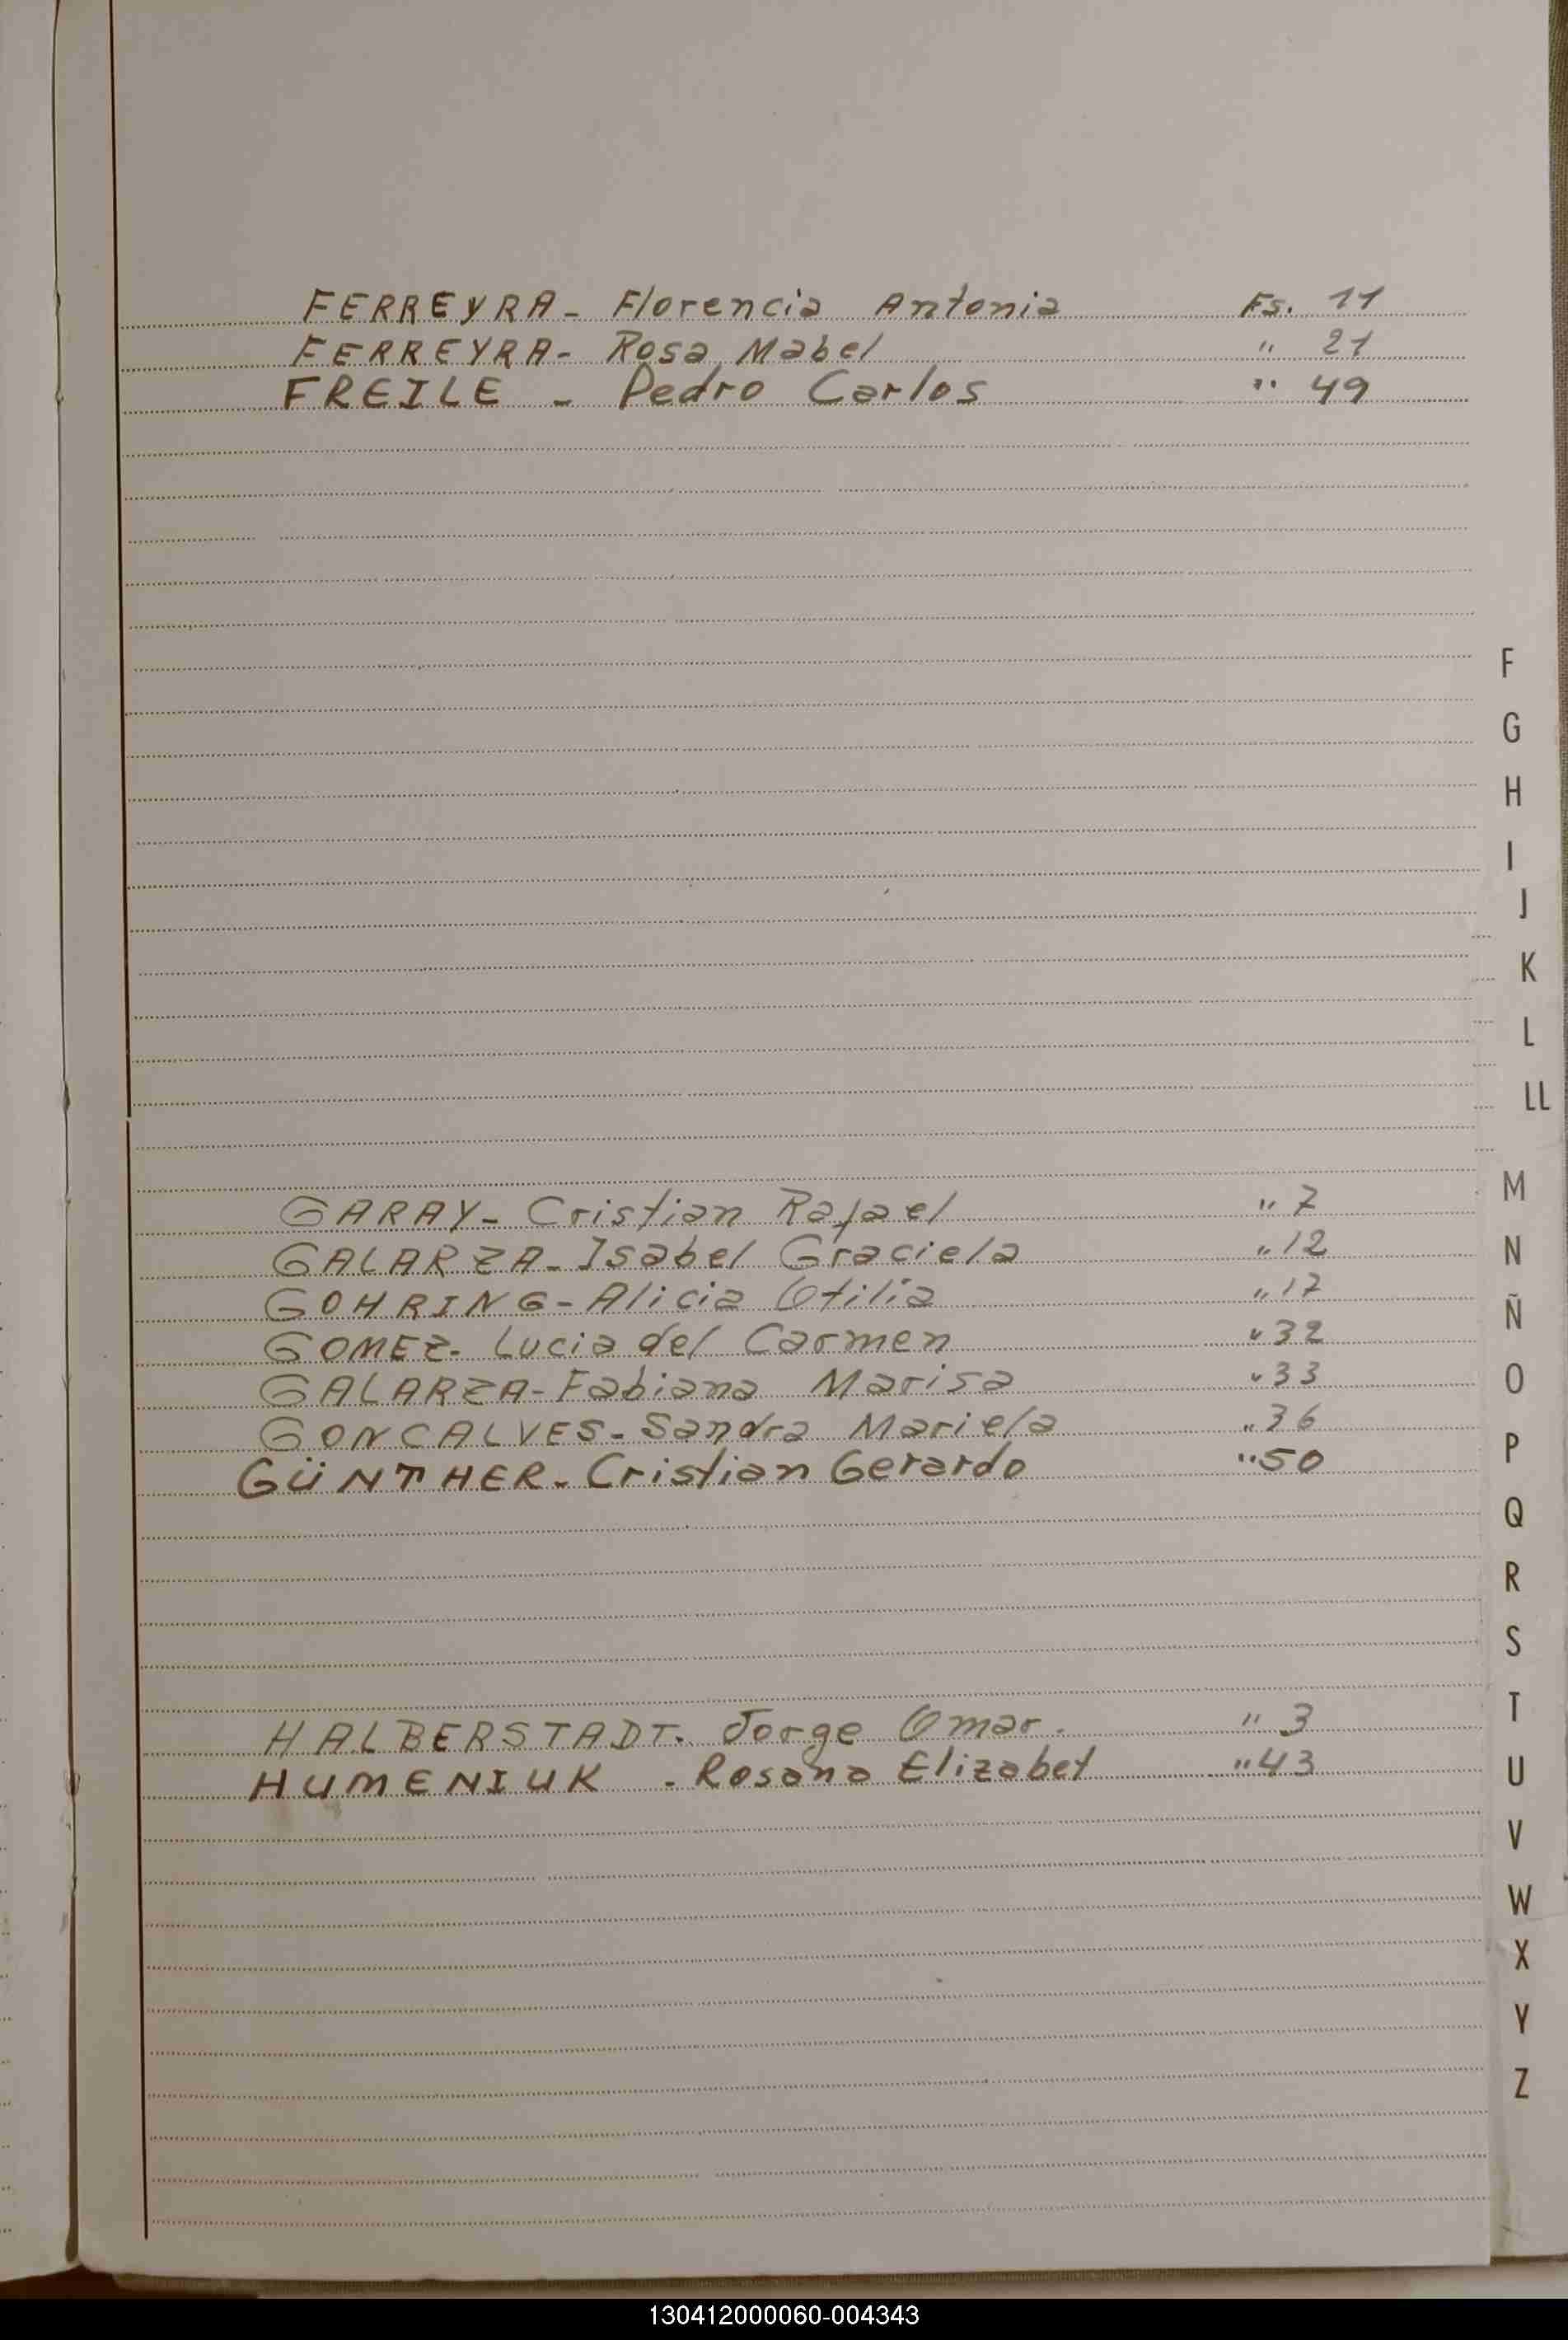 FERREYRA - Florencia Antonia Fs. 11
FERREYRA - Rosa Mabel " 21
FREILE - Pedro Carlos " 49
F
G
H
I
J
K
L
LL
M
GARAY - Cristian Rafael " 7
N
GALARZA - Isabel Graciela " 12
GOHRING - Alicia Otilia " 17
Ñ
GOMEZ - Lucia del Carmen " 32
O
GALARZA - Fabiana Marisa " 33
GONCALVES - Sandra Mariela " 36
P
GÜNTHER - Cristian Gerardo " 50
Q
R
S
T
HALBERSTADT. Jorge Omar. " 3
HUMENIUK - Rosana Elizabet " 43
U
V
W
X
Y
Z
130412000060-004343